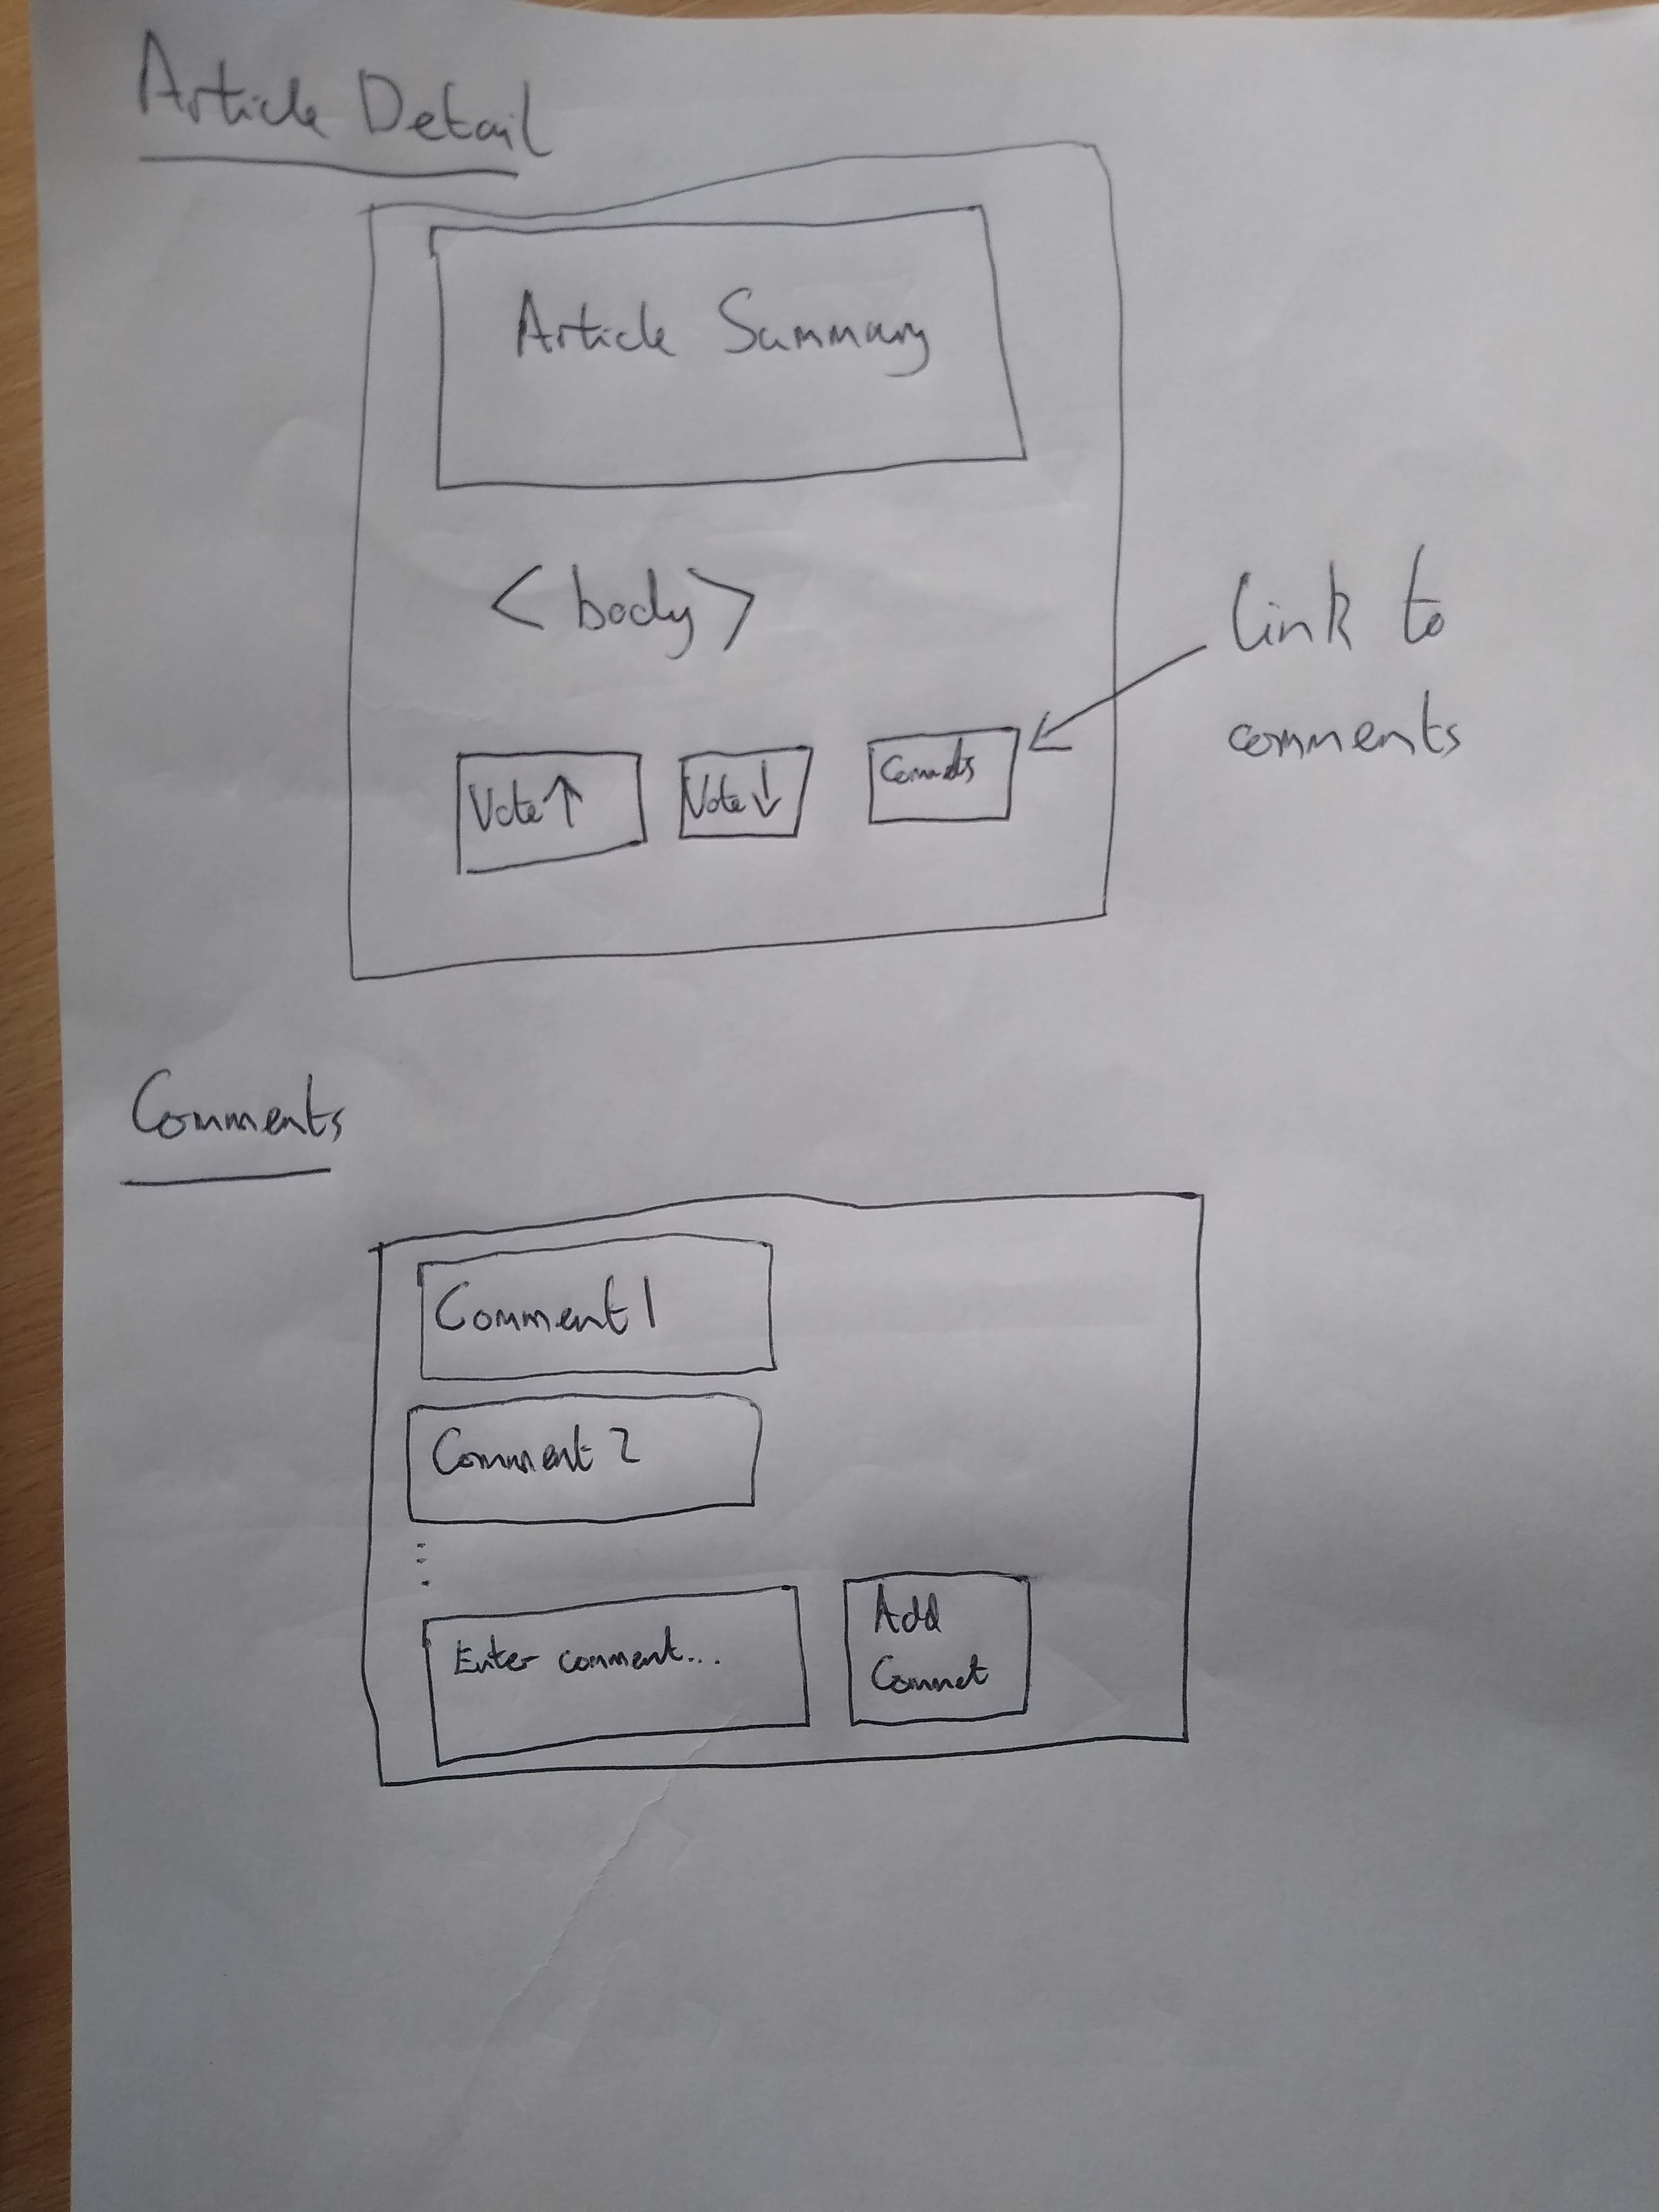 Article Detail
Article Summary
<body>
link to
comments
Vote↑
Vote↓
Commets
Comments
Comment 1
Comment 2
⋮
Enter comment...
Add
Commet